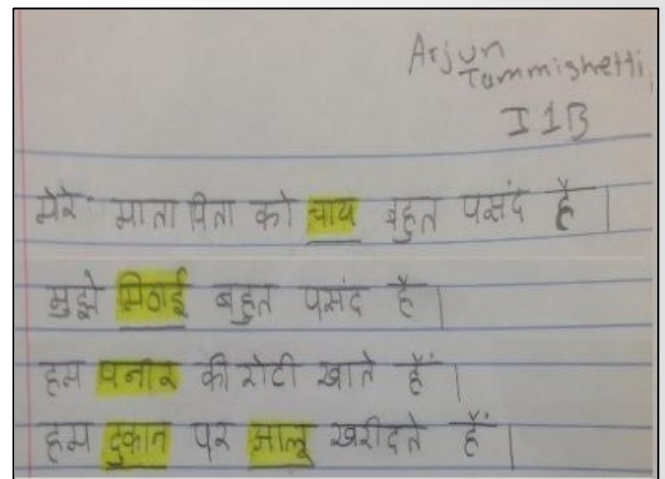 Arjun
Tammishetti
I 1B
मेरे माता पिता को चाय बहुत पसंद है |
मुझे मिठाई बहुत पसंद है |
हम पनीर की रोटी खाते हैं |
हम दुकान पर आलू खरीदते हैं |